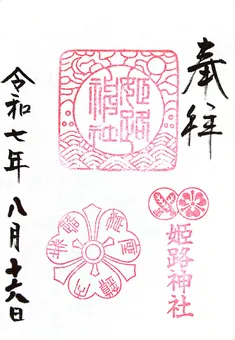 奉拝
姫路
神社
姫路神社
令和七年 八月十六日